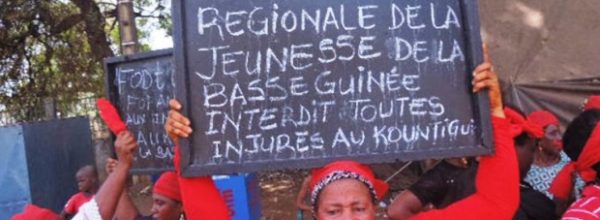 REGIONALE DE LA
JEUNESSE DE LA
BASSE GUINÉE
INTERDIT TOUTES
INJURES AU KOUNTIGUI
FODÉ
AU